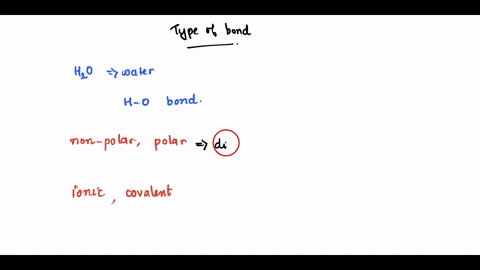 Type of bond
H₂O ⇒ water
H-O bond.
non-polar, polar ⇒ di
ionic, covalent